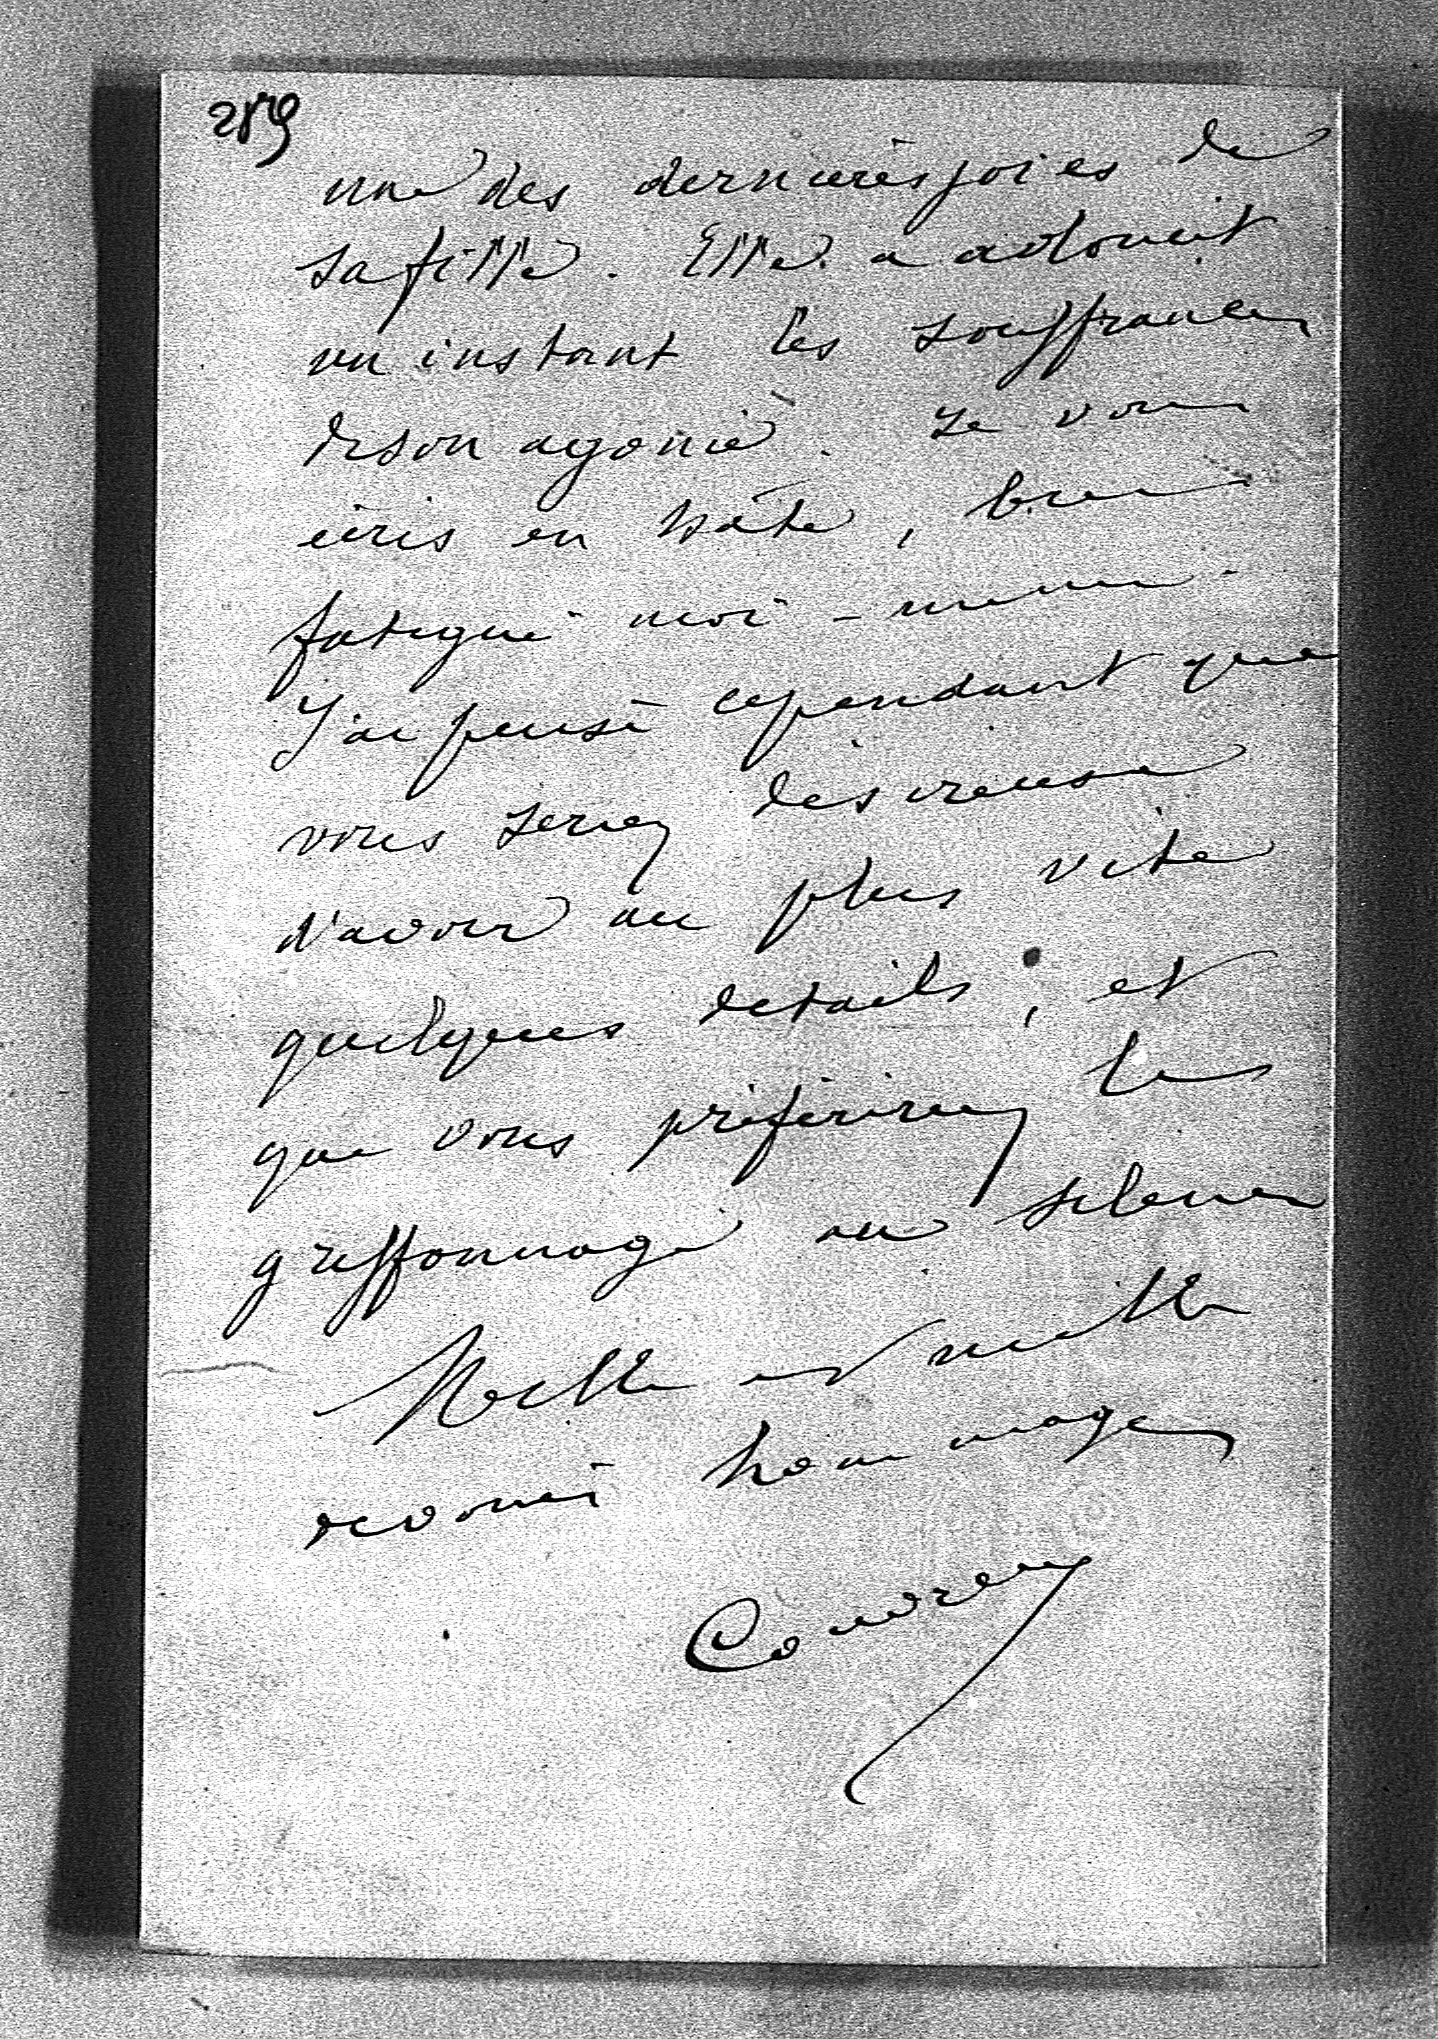 259
une des dernières joies de
sa fille. Elle a adoucit
un instant les souffrances
de son agonie. Je vous
écris en hâte, bien
fatigué moi-même.
J'ai pensé cependant que
vous seriez désireuse
d'avoir au plus vite
quelques détails ; et
que vous préféreriez les
griffonnage au silence
Mille et mille
dévoués hommages
Couvreux